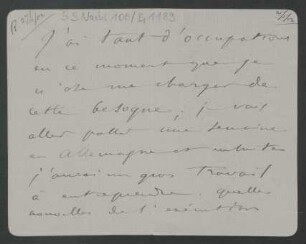 J'ai tant d'occupations
en ce moment que je
n'ose me charger de
cette besogne; je vais
aller passer une semaine
en Allemagne et
j'aurai un gros travail
à entreprendre. quelles
nouvelles de l'